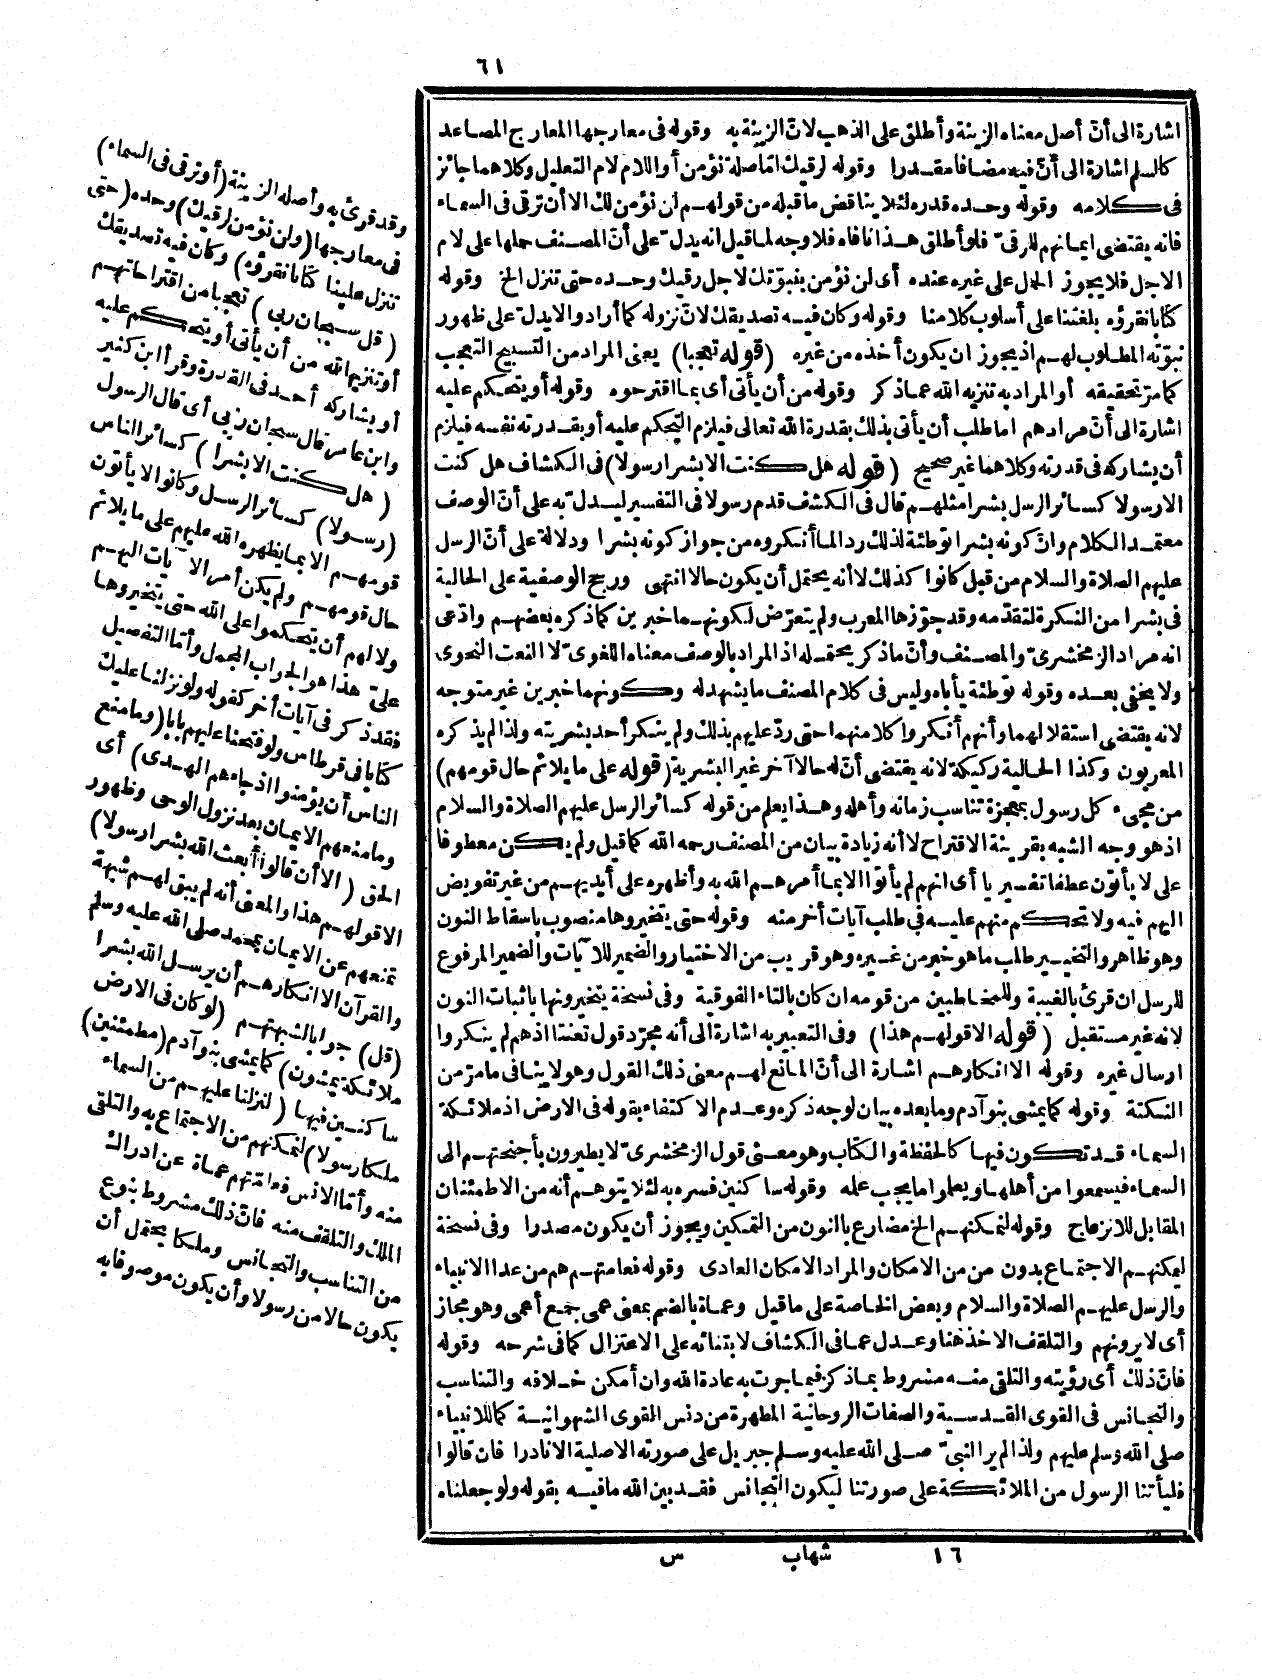 ٦١
اشارة الى أنّ أصل معناه الزينة وأطلق على الذهب لانّ الزينة به وقوله فى معارجها المعارج المصاعد
كالسلم اشارة الى أنّ فيه مضافا مقدرا وقوله لرقيك امّا صلة نؤمن أو اللام لام التعليل وكلاهما جائز
فى كلامه وقوله وحده قدره لئلا يناقض ما قبله من قولهم لن نؤمن لك الا أن ترقى فى السماء
فانه يقتضى ايمانهم للرقىّ فلو أطلق هذا نافاه فلا وجه لما قيل انه يدلّ على أنّ المصنف حملها على لام
الاجل فلا يجوز الحمل على غيره عنده أى لن نؤمن بنبوّتك لاجل رقيك وحده حتى تنزل الخ وقوله
كتابا نقرؤه بلغتنا على أسلوب كلامنا وقوله وكان فيه تصديقك لانّ نزوله كما أرادوا لا يدلّ على ظهور
نبوّته المطلوب لهم اذ يجوز ان يكون أخذه من غيره (قوله تعجبا) يعنى المراد من التسبيح التعجب
كما مرّ تحقيقه أو المراد به تنزيه الله عما ذكر وقوله من أن يأتى أى بما اقترحوه وقوله أو يتحكم عليه
اشارة الى أنّ مرادهم اما طلب أن يأتى بذلك بقدرة الله تعالى فيلزم التحكم عليه أو بقدرته نفسه فيلزم
أن يشاركه فى قدرته وكلاهما غير صحيح (قوله هل كنت الا بشرا رسولا) فى الكشاف هل كنت
الا رسولا كسائر الرسل بشرا مثلهم قال فى الكشف قدم رسولا فى التفسير ليدلّ به على أنّ الوصف
معتمد الكلام وانّ كونه بشرا توطئة لذلك ردا لما أنكروه من جواز كونه بشرا ودلالة على أنّ الرسل
عليهم الصلاة والسلام من قبل كانوا كذلك لا أنه يحتمل أن يكون حالا انتهى ورجح الوصفية على الحالية
فى بشرا من النكرة لتقدّمه وقد جوّزها المعرب ولم يتعرّض لكونهما خبرين كما ذكره بعضهم وادّعى
انه مراد الزمخشرىّ والمصنف وأنّ ما ذكر يحتمله اذ المراد بالوصف معناه اللغوىّ لا النعت النحوى
ولا يخفى بعده وقوله توطئة يأباه وليس فى كلام المصنف ما يشهد له وكونهما خبرين غير متوجه
لانه يقتضى استقلالهما وأنهم أنكروا كلا منهما حتى ردّ عليهم بذلك ولم ينكر أحد بشريته ولذا لم يذكره
المعربون وكذا الحالية ركيكة لانه يقتضى أنّ له حالا آخر غير البشرية (قوله على ما يلائم حال قومهم)
من مجىء كل رسول بمعجزة تناسب زمانه وأهله وهذا يعلم من قوله كسائر الرسل عليهم الصلاة والسلام
اذ هو وجه الشبه بقرينة الاقتراح لا أنه زيادة بيان من المصنف رحمه الله كما قيل ولم يكن معطوفا
على لا يأتون عطفا تفسيريا أى انهم لم يأتوا الا بما أمرهم الله به وأظهره على أيديهم من غير تفويض
اليهم فيه ولا تحكم منهم عليه فى طلب آيات أخر منه وقوله حتى يتخيروها منصوب باسقاط النون
وهو ظاهر والتخيير طلب ما هو خير من غيره وهو قريب من الاختيار والضمير للآيات والضمير المرفوع
للرسل ان قرئ بالغيبة وللمخاطبين من قومه ان كان بالتاء الفوقية وفى نسخة يتخيرونها باثبات النون
لانه غير مستقبل (قوله الا قولهم هذا) وفى التعبير به اشارة الى أنه مجرّد قول تعنتا اذ هم لم ينكروا
ارسال غيره وقوله الا انكارهم اشارة الى أنّ المانع لهم معنى ذلك القول وهو لا ينافى ما مرّ من
النكتة وقوله كما يمشى بنو آدم وما بعده بيان لوجه ذكره وعدم الاكتفاء بقوله فى الارض اذ ملائكة
السماء قد تكون فيها كالحفظة والكتاب وهو معنى قول الزمخشرىّ لا يطيرون بأجنحتهم الى
السماء فيسمعوا من أهلها ويعلموا ما يجب علمه وقوله ساكنين فسره به لئلا يتوهم أنه من الاطمئنان
المقابل للانزعاج وقوله لتمكنهم الخ مضارع بالنون من التمكين ويجوز أن يكون مصدرا وفى نسخة
ليمكنهم الاجتماع بدون من من الامكان والمراد الامكان العادى وقوله فعامتهم هم من عدا الانبياء
والرسل عليهم الصلاة والسلام وبعض الخاصة على ما قيل وعماة بالضم بمعنى عمى جمع أعمى وهو مجاز
أى لا يرونهم والتلقف الاخذ هنا وعدل عما فى الكشاف لابتنائه على الاعتزال كما فى شرحه وقوله
فانّ ذلك أى رؤيته والتلقى منه مشروط بما ذكر فيما جرت به عادة الله وان أمكن خلافه والتناسب
والتجانس فى القوى القدسية والصفات الروحانية المطهرة من دنس القوى الشهوانية كما للانبياء
صلى الله وسلم عليهم ولذا لم ير النبىّ صلى الله عليه وسلم جبريل على صورته الاصلية الا نادرا فان قالوا
فليأتنا الرسول من الملائكة على صورتنا ليكون التجانس فقد بين الله ما فيه بقوله ولو جعلناه
١٦ شهاب س
وقد قرئ به وأصله الزينة (أو ترقى فى السماء)
فى معارجها (ولن نؤمن لرقيك) وحده (حتى
تنزل علينا كتابا نقرؤه) وكان فيه تصديقك
(قل سبحان ربى) تعجبا من اقتراحاتهم
أو تنزيها لله من أن يأتى أو يتحكم عليه
أو يشاركه أحد فى القدرة وقرأ ابن كثير
وابن عامر قال سبحان ربى أى قال الرسول
(هل كنت الا بشرا) كسائر الناس
(رسولا) كسائر الرسل وكانوا لا يأتون
قومهم الا بما يظهره الله عليهم على ما يلائم
حال قومهم ولم يكن أمر الآيات اليهم
ولا لهم أن يتحكموا على الله حتى يتخيروها
علىّ هذا هو الجواب المجمل وأمّا التفصيل
فقد ذكر فى آيات أخر كقوله ولو نزلنا عليك
كتابا فى قرطاس ولو فتحنا عليهم بابا (وما منع
الناس أن يؤمنوا اذ جاءهم الهدى) أى
وما منعهم الايمان بعد نزول الوحى وظهور
الحق (الا أن قالوا أبعث الله بشرا رسولا)
الا قولهم هذا والمعنى أنه لم يبق لهم شبهة
تمنعهم عن الايمان بمحمد صلى الله عليه وسلم
والقرآن الا انكارهم أن يرسل الله بشرا
(قل) جوابا لشبهتهم (لو كان فى الارض
ملائكة يمشون) كما يمشى بنو آدم (مطمئنين)
ساكنين فيها (لنزلنا عليهم من السماء
ملكا رسولا) لتمكنهم من الاجتماع به والتلقى
منه وأمّا الانس فعامّتهم عماة عن ادراك
الملك والتلقف منه فانّ ذلك مشروط بنوع
من التناسب والتجانس وملكا يحتمل أن
يكون حالا من رسولا وأن يكون موصوفا به